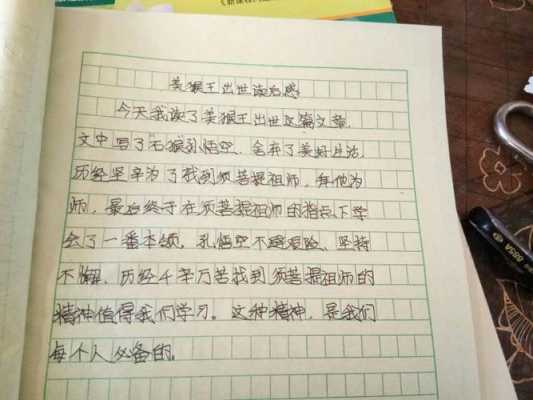 美猴王出世读后感
今天我读了美猴王出世这篇文章.
文中写了石猴孙悟空、舍弃了美好生活.
历经坚辛为了找到须菩提祖师，拜他为
师，最后终于在须菩提祖师的指点下学
会了一番本领。孔悟空不畏艰险、坚持
不懈、历经千辛万苦找到须菩提祖师的
精神值得我们学习。这种精神，是我们
每个人必备的。